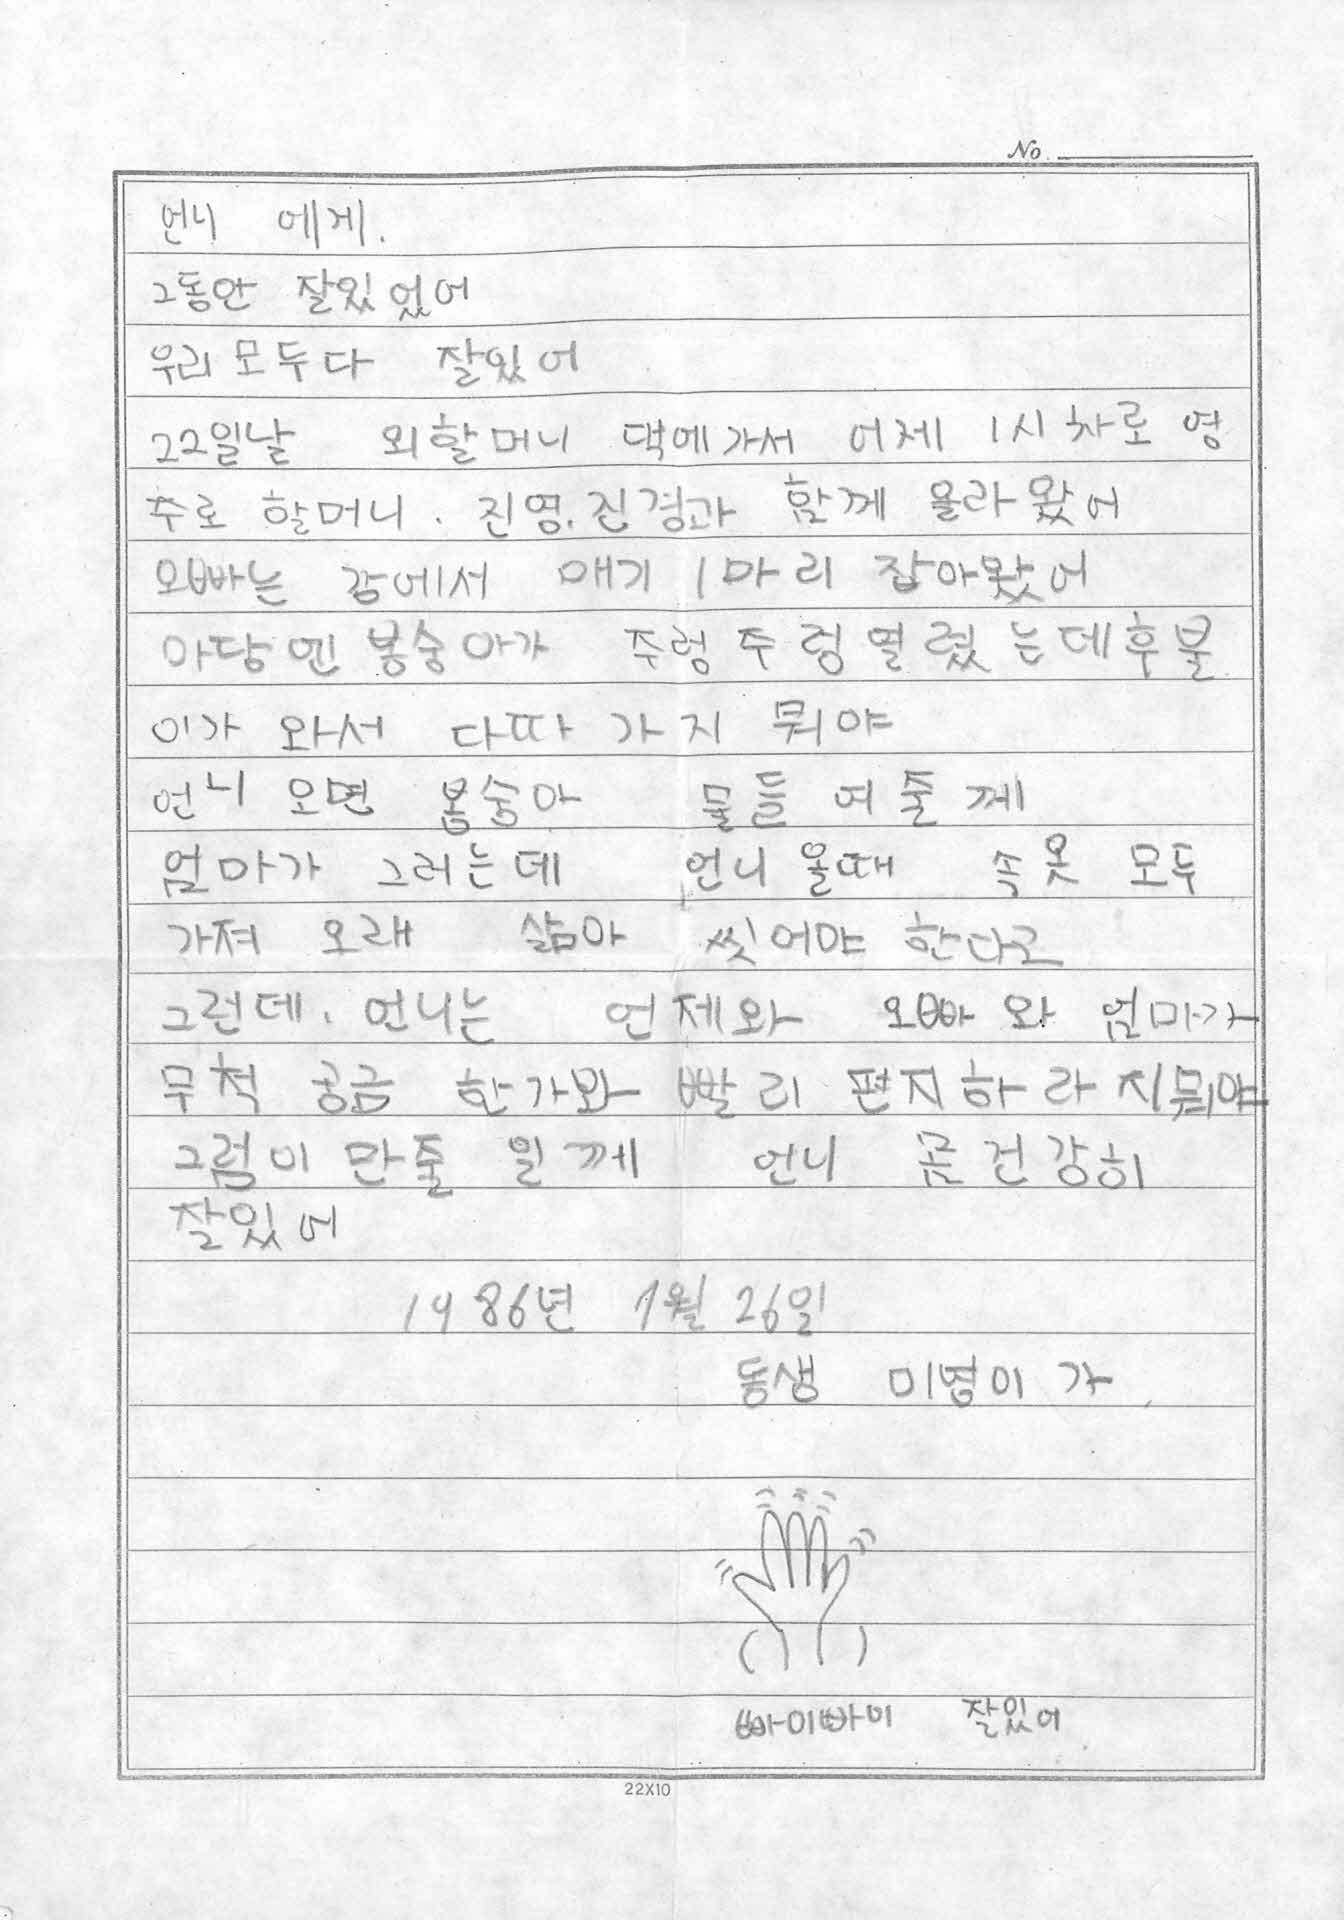 No.
언니 에게.
그동안 잘있었어
우리 모두다 잘있어
22일날 외할머니 댁에가서 어제 1시차로 영
주로 할머니. 진영.진경과 함께 올라왔어
오빠는 강에서 매기 1마리 잡아왔어
마당엔 봉숭아가 주렁주렁열렸는데후불
이가 와서 다따 가지 뭐야
언니 오면 봉숭아 물들여줄께
엄마가 그러는데 언니 올때 속옷 모두
가져 오래 삶아 씻어야 한다고
그런데. 언니는 언제와 오빠와 엄마가
무척 궁금 한가봐 빨리 편지하라 지뭐야
그럼이만줄일께 언니 몸건강히
잘있어
1986년 7월 26일
동생 미영이가
빠이빠이 잘있어
22X10